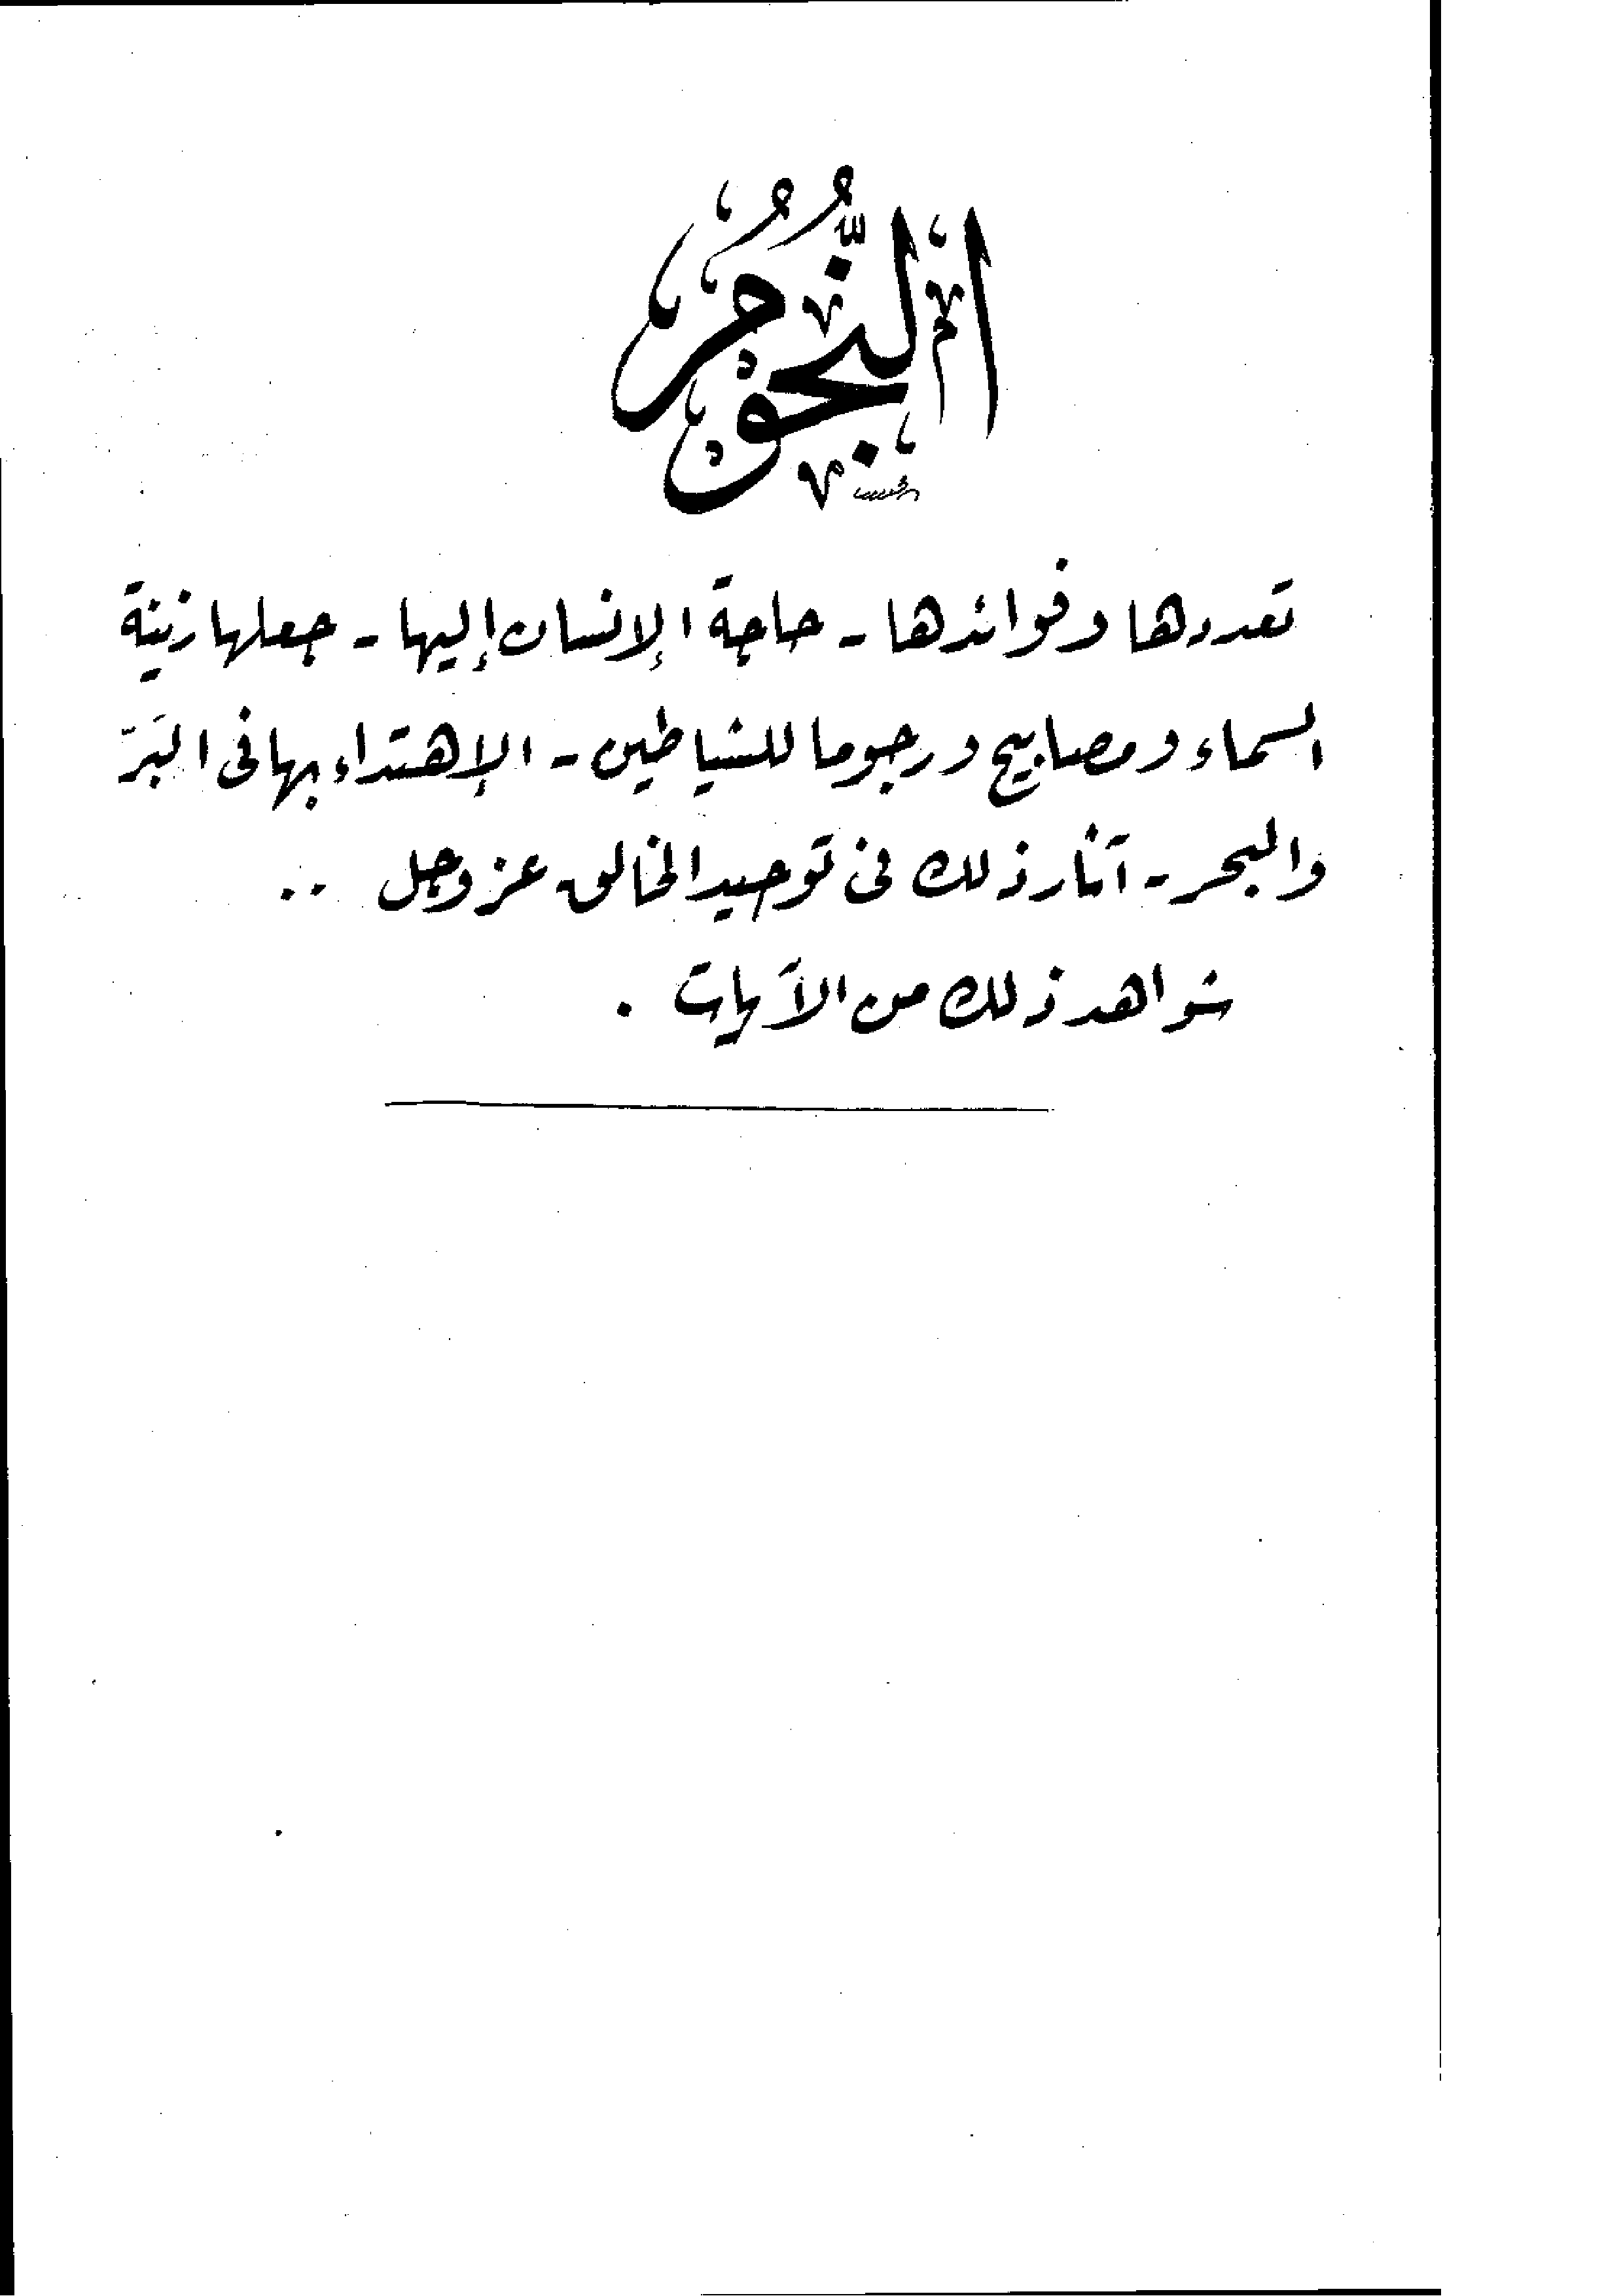 النُّجُومُ
تعددها وفوائدها - حاجة الإنسان إليها - جعلها زينة
السماء ومصابيح ورجوما للشياطين - الإهتداء بها فى البَرّ
والبحر - آثار ذلك فى توحيد الخالق عز وجل ..
شواهد ذلك من الآيات .